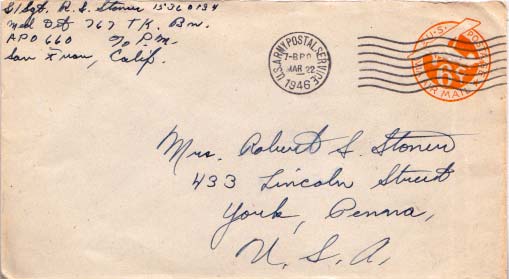 S/Sgt. R. S. Stoner 15360134
Med Det 767 T.K. Bn.
APO 660 c/o P.M.
San Fran, Calif.
U.S. ARMY POSTAL SERVICE
7-BPO
MAR 22
1946
U.S. POSTAGE
6¢
AIR MAIL
Mrs. Robert S. Stoner
433 Lincoln Street
York, Penna,
U. S. A.